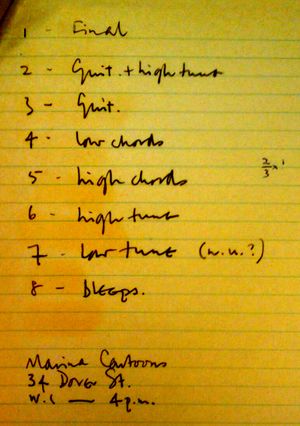 1 - Final
2 - Guit. + high tune
3 - Guit.
4 - low chords
5 - high chords
2/3
6 - high tune
7 - low tune (w.n.?)
8 - bleeps.
Marina Cartoons
34 Dover St.
W.1 — 4 p.m.